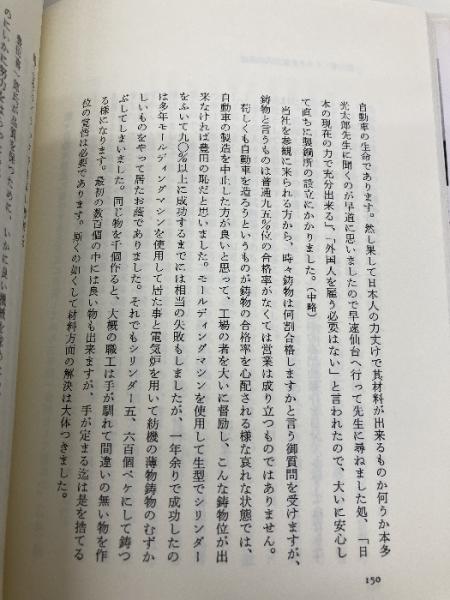 自動車の生命であります。然し果して日本人の力丈けで其材料が出来るものか何うか本多
光太郎先生に聞くのが早道に思いましたので早速仙台へ行って先生に尋ねました処、「日
本の現在の力で充分出来る」、「外国人を雇う必要はない」と言われたので、大いに安心し
て直ちに製鋼所の設立にかかりました。(中略)
当社を参観に来られる方から、時々鋳物は何割合格しますかと言う御質問を受けますが、
鋳物と言うものは普通九五%位の合格率がなくては営業は成り立つものではありません。
苟しくも自動車を造ろうというものが鋳物の合格率を心配される様な哀れな状態では、
自動車の製造を中止した方が良いと思って、工場の者を大いに督励し、こんな鋳物位が出
来なければ豊田の恥だと思いました。モールディングマシンを使用して生型でシリンダー
をふいて九〇%以上に成功するまでには相当の失敗もしましたが、一年余りで成功したの
は多年モールディングマシンを使用して居た事と電気炉を用いて紡機の薄物鋳物のむずか
しいものをやって居たお蔭でありました。それでもシリンダー五、六百個ペケにして鋳つ
ぶしてしまいました。同じ物を千個作ると、大概の職工は手が馴れて間違いの無い物を作
る様になります。最初の数百個の中には良い物も出来ますが、手が定まる迄は是を捨てる
位の覚悟は必要であります。斯くの如くして材料方面の解決は大体つきました。
150